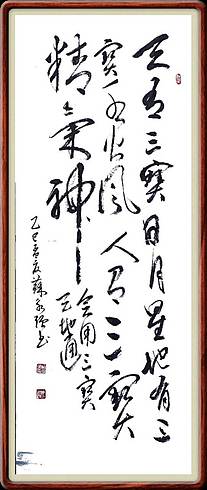 天有三寶日月星地有三
寶水火風人有三寶
精氣神
會用三寶
天地通
乙巳 蘇永 书